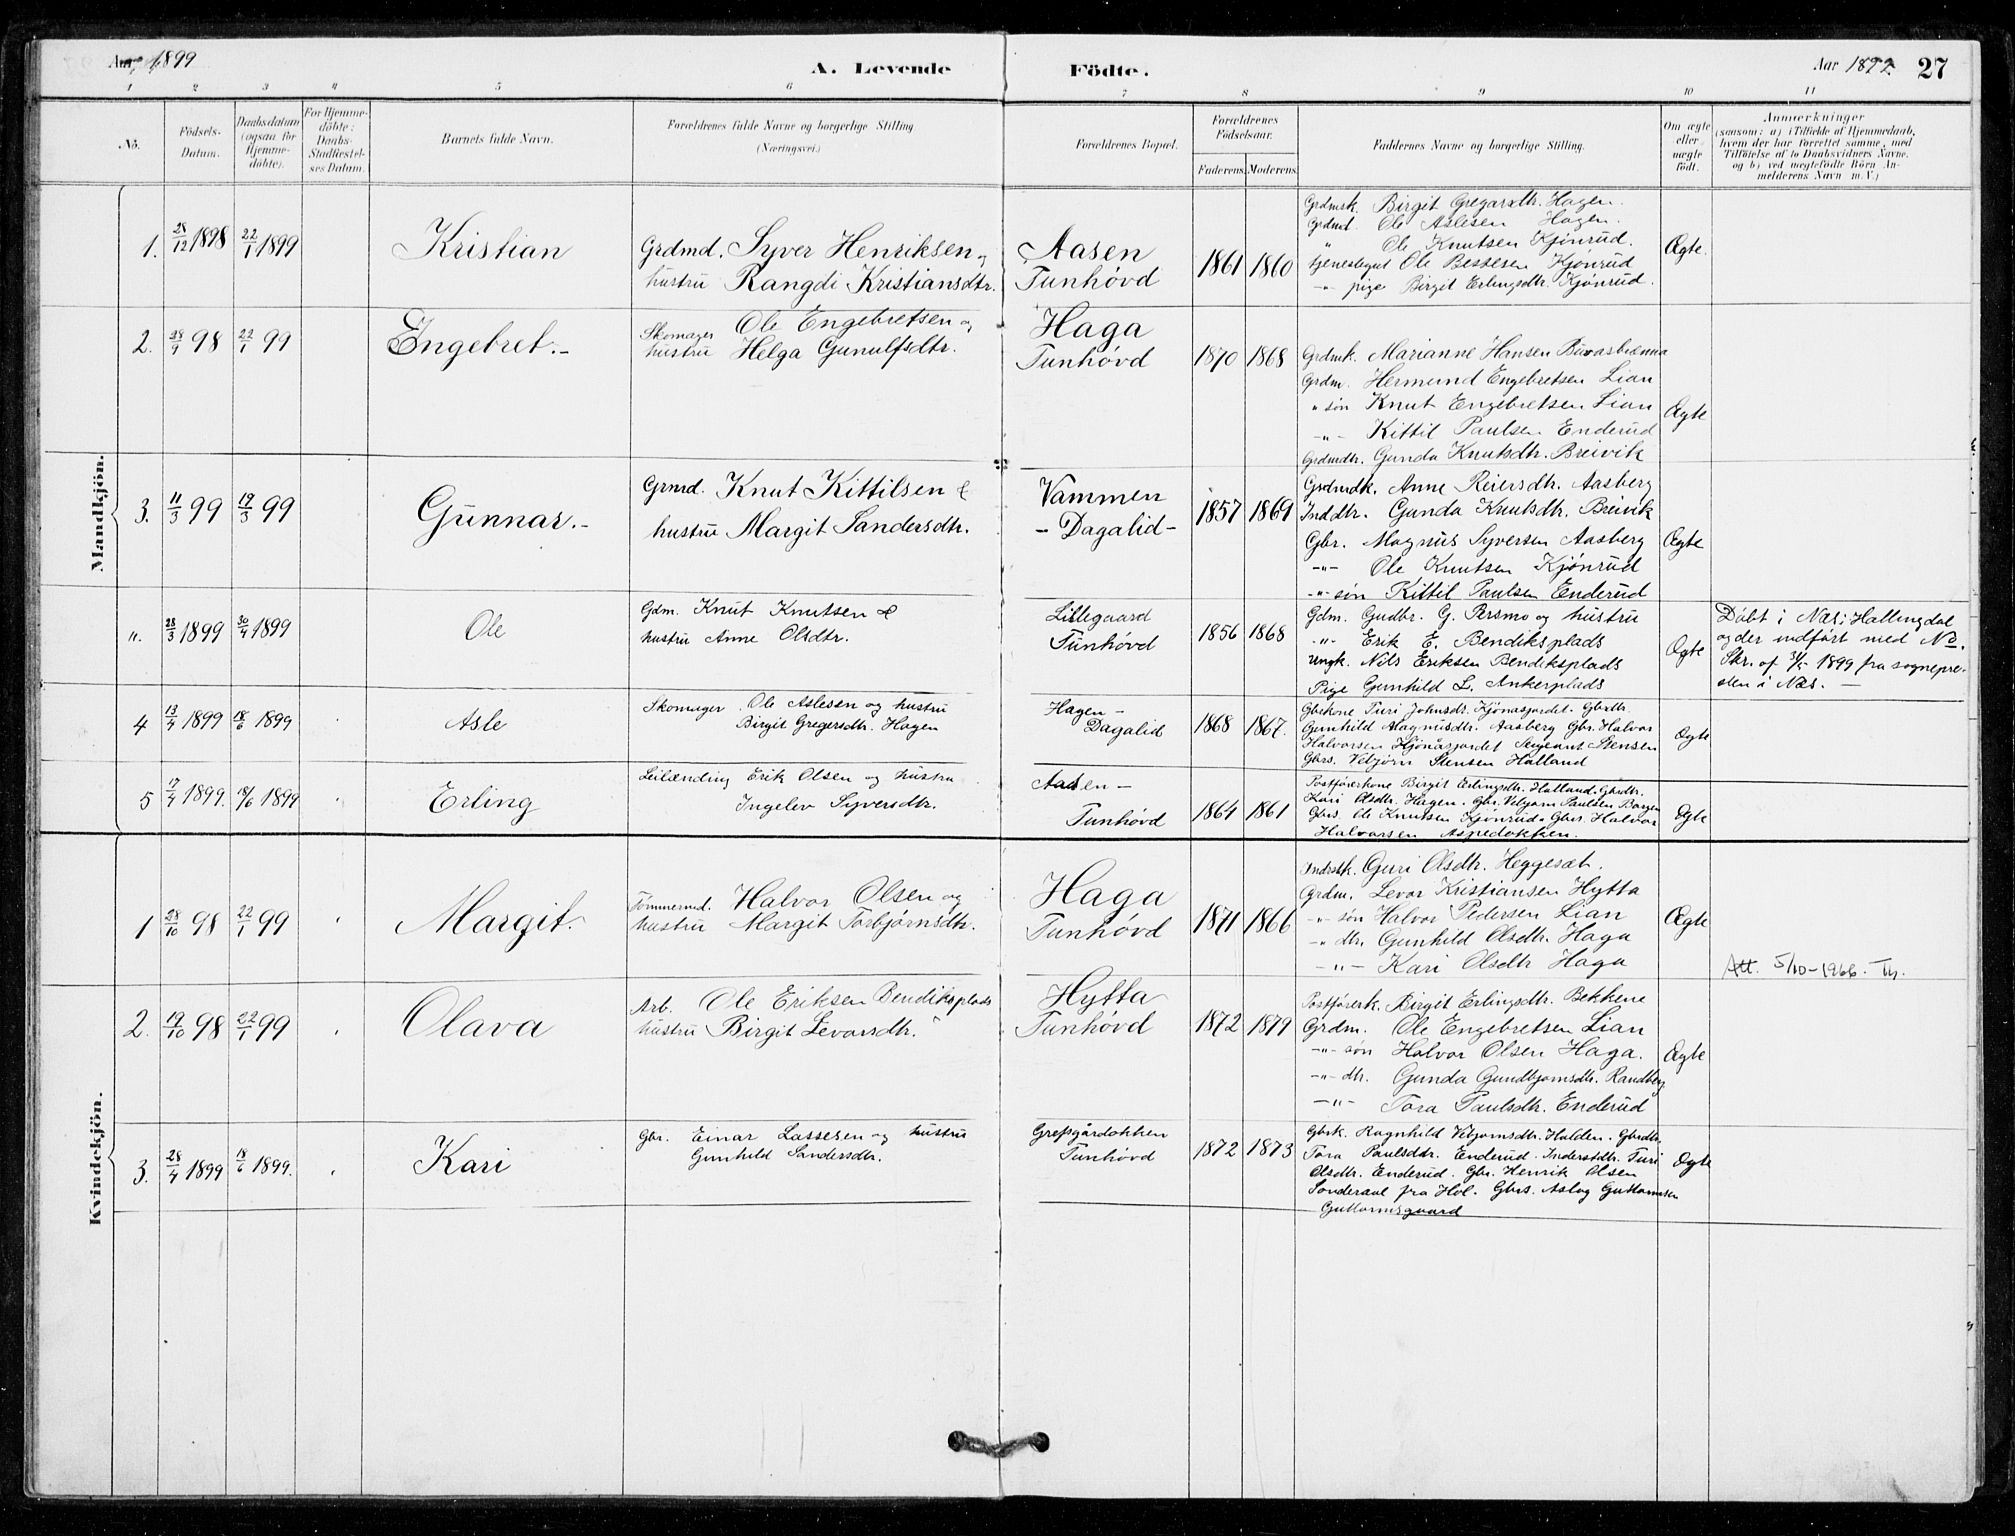 Aar 1899
A. Levende Födte.
Aar 1899 27
1 2 3 4 5 6 7 8 9 10 11
No.
Födsels-Datum.
Daabsdatum (ogsaa for Hjemmedöbte).
For Hjemmedöbte: Daabs-Stadfæstelses Datum.
Barnets fulde Navn.
Forældrenes fulde Navne og borgerlige Stilling (Næringsvei.)
Forældrenes Bopæl.
Forældrenes Födselsaar.
Faderens. Moderens.
Faddernes Navne og borgerlige Stilling.
Om ægte eller uægte födt.
Anmerkninger
(saasom: a) i Tilfælde af Hjemmedaab, hvem der har forrettet samme, med Tilföielse af to Daabsvidners Navne, og b) ved uægtefödte Börn Anmelderens Navn m. V.)
Mandkjön.
1. 28/12 1898 22/1 1899 Kristian
Grdmd. Syver Henriksen og
hustru Rangdi Kristiansdtr.
Aasen
Tunhövd
1861 1860
Grdmsk. Birgit Gregarsdtr. Hagen.
Grdmd. Ole Aslesen Hagen.
" Ole Knutsen Kjönrud.
tjenestegut Ole Bessesen Kjönrud
-"- pige Birgit Erlingsdtr. Kjönrud.
Ægte
2. 28/9 98 22/1 99 Engebret.-
Skomager Ole Engebretsen og
hustru Helga Gunulfsdtr.
Haga
Tunhövd
1870 1868
Grdmk. Marianne Hansen Buvasbrænna
Grdm. Hermund Engebretsen Lian
" sön Knut Engebretsen Lian
-"- Kittil Paulsen Enderud
Grdmdtr. Gunda Knutsdtr. Breivik
Ægte
3. 11/3 99 19/3 99 Gunnar.-
Grmd. Knut Kittilsen &
hustru Margit Sandersdtr.
Vammen
- Dagalid -
1857 1869
Grdmdk. Anne Reiersdtr. Aasberg
Inddtr. Gunda Knutsdtr. Breivik
Gbr. Magnus Syversen Aasberg
-"- Ole Knutsen Kjönrud
-"- sön Kittil Paulsen Enderud
Ægte
". 28/3 1899 30/4 1899 Ole
Gdm. Knut Knutsen &
hustru Anne Olsdtr.
Lillegaard
Tunhövd
1856 1868
Gdm. Gudbr. G. Persmo og hustru
-"- Erik E. Bendiksplads
Ungk. Nils Eriksen Bendiksplads
Pige Gunhild L. Ankerplads
Ægte
Döbt i Næs i Hallingdal
og der indfört med No.
Skr. af 31/5 1899 fra sognepre-
sten i Næs. —
4 13/4 1899 18/6 1899 Asle
Skomager Ole Aslesen og hustru
Birgit Gregersdtr. Hagen
Hagen -
Dagalid
1868 1867.
Gbrkone Turi Johnsdr. Kjönasjordet. Gbrdtr.
Gunhild Magnusdtr. Aasberg Gbr. Halvor
Halvorsen Kjönåsjordet Sergeant Stensen
Gbrs. Vebjörn Stensen Halland
Ægte
5 17/4 1899. 18/6 1899 Erling
Leilænding Erik Olsen og hustru
Ingelev Syversdtr.
Aasen -
Tunhövd
1864 1861
Postförerkone Birgit Erlingsdtr. Halland. Gbrdtr.
Kari Olsdtr. Hagen. Gbr. Vebjörn Paulsen Bargen
Gbrs. Ole Knutsen Kjönrud. Gbrs. Halvor
Halvorsen Aspedokken.
Ægte
Kvindekjön.
1 28/10 98 22/1 99 Margit.
Tömmermd. Halvor Olsen og
hustru Margit Torbjörnsdtr.
Haga
Tunhövd
1871 1866
Indrstk. Guri Olsdtr. Heggesæt.
Grdm. Levor Kristiansen Hytta
-"- sön Halvor Pedersen Lian
-"- dtr. Gunhild Olsdtr. Haga
-"- Kari Olsdtr Haga
Ægte
Att. 5/10-1966. Th.
2. 19/10 98 22/1 99 Olava
Arb. Ole Eriksen Bendiksplads
hustru Birgit Levorsdtr. "
Hytta
Tunhövd
1872 1879
Postförerk. Birgit Erlingsdtr. Bekkene
Grdm. Ole Engebretsen Lian
-"- sön Halvor Olsen Haga.
-"- dtr. Gunda Gundbjornsdtr. Randberg
-"- Tora Paulsdtr. Enderud
Ægte
3. 28/4 1899 18/6 1899. Kari
Gbr. Einar Lassesen og hustru
Gunhild Sandersdtr.
Grefsgårdokken
Tunhövd
1872 1873
Gbrk. Ragnhild Vebjornsdtr. Halden. Gbrdtr.
Tora Paulsdtr. Enderud. Inderstdtr. Turi
Olsdtr. Enderud. Gbr. Henrik Olsen
Sonderaal fra Hol. Gbrs. Aslag Guttormsen
Guttormsgaard
Ægte